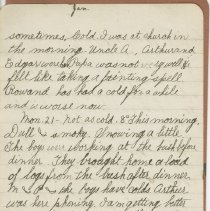 Jan.
sometimes. Cold. I was at church in
the morning. Uncle A., Arthur and
Edgar were. Papa was not very well &
felt like taking a fainting spell.
Rowand has had a cold for awhile
and is worse now.
Mon. 21 - not as cold. 8° this morning,
Dull & smoky. Snowing a little.
The boys were working at the bush before
dinner. They brought home a load
of logs from the bush after dinner.
the boys have colds. Arthur
was here phoning. I am getting better